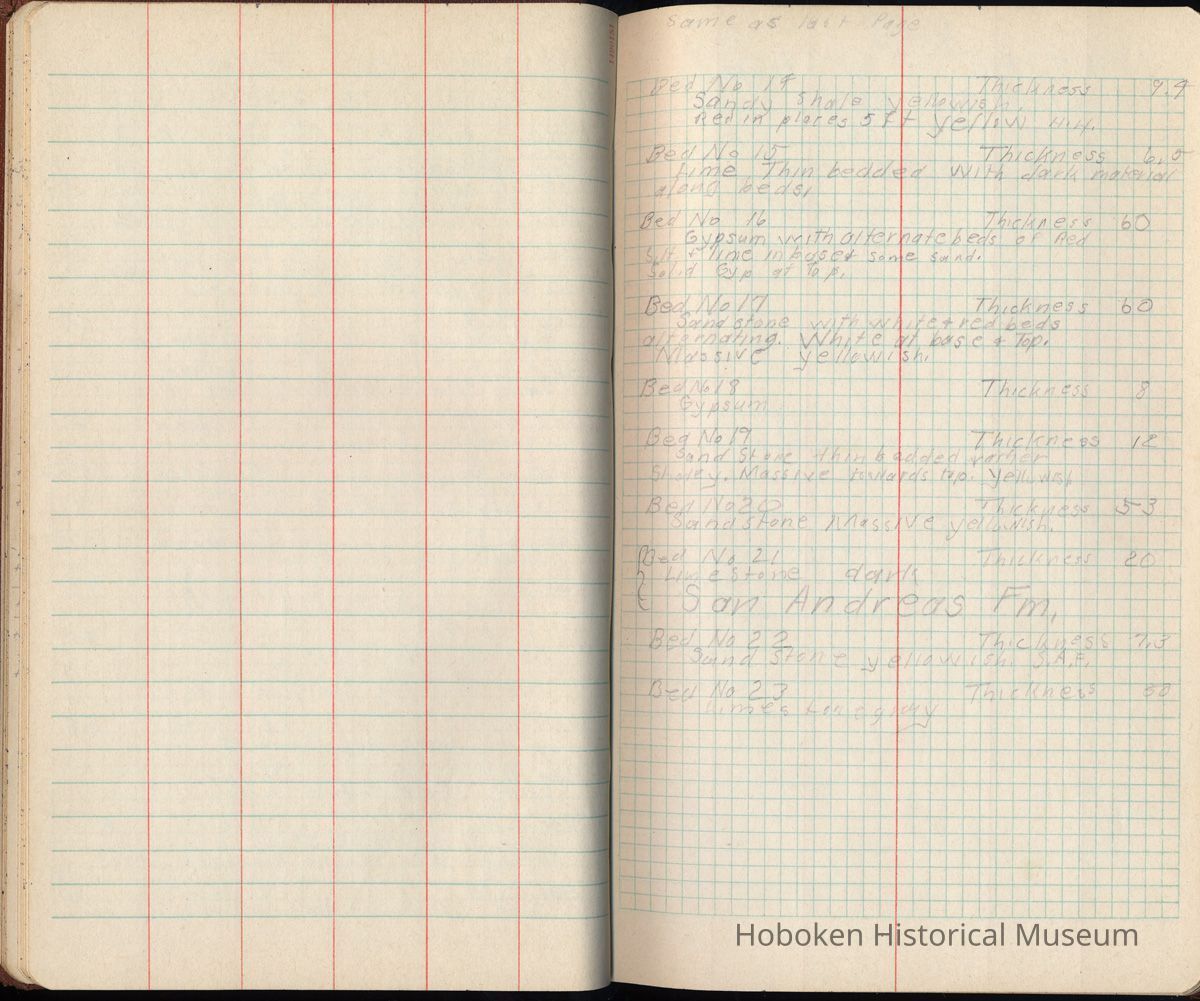 Same as last Page
Bed No 14 Thickness 9.4
Sandy Shale yellowish.
Red in places 5 ft yellow
Bed No 15 Thickness 6.5
lime Thin bedded with dark material
along beds,
Bed No 16 Thickness 60
Gypsum with alternate beds of Red
Silt & lime in base & some sand.
Solid Gyp at Top.
Bed No 17 Thickness 60
Sandstone with white & red beds
alternating. White at base & Top.
Massive yellowish.
Bed No 18 Thickness 8
Gypsum
Bed No 19 Thickness 12
Sand Stone thin bedded rather
Shaley. Massive towards top. Yellowish
Bed No 20 Thickness 53
Sandstone Massive yellowish.
Bed No. 21 Thickness 20
Limestone dark
San Andreas Fm.
Bed No 22 Thickness 7.3
Sand Stone yellowish. S.A.F.
Bed No 23 Thickness 50
limestone gray
Hoboken Historical Museum